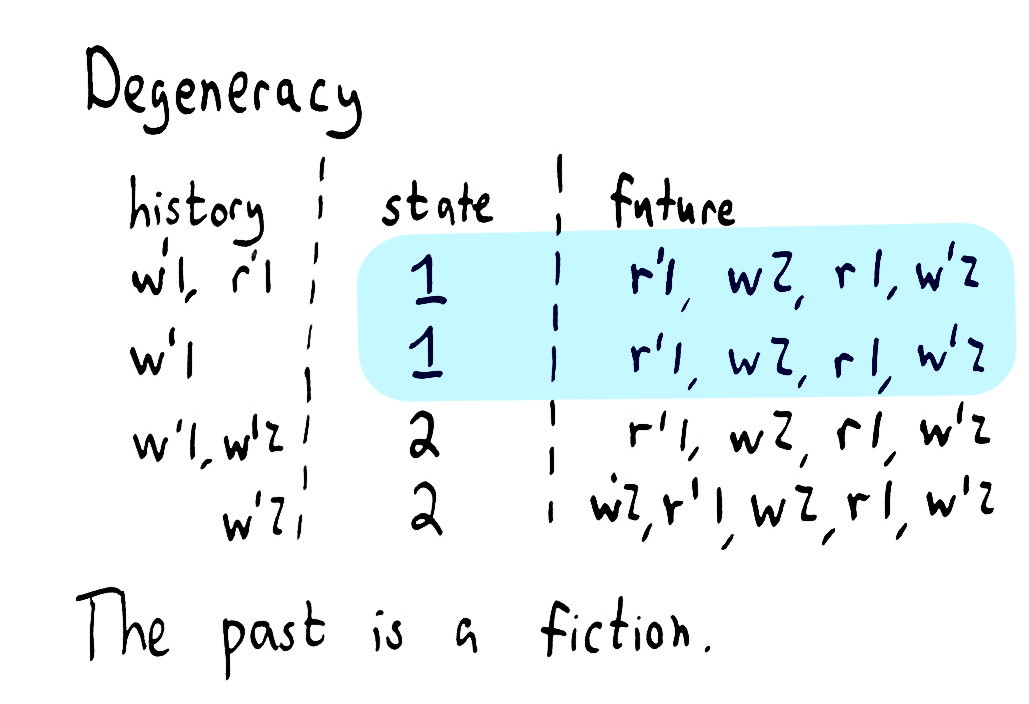 Degeneracy
history state future
w'1, r'1 1 r'1, w2, r1, w'2
w'1 1 r'1, w2, r1, w'2
w'1, w'2 2 r'1, w2, r1, w'2
w'2 2 w2, r'1, w2, r1, w'2
The past is a fiction.